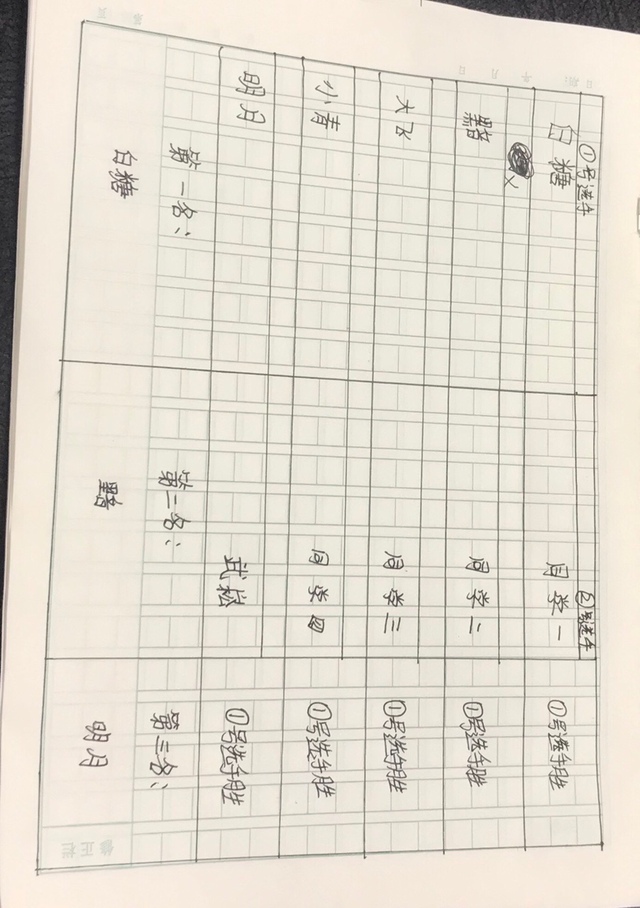 ①号选手 ②号选手
白糖 同学一 ①号选手胜
黯 同学二 ①号选手胜
大飞 同学三 ①号选手胜
小青 同学四 ①号选手胜
明月 武崧 ①号选手胜
第一名： 第二名： 第三名：
白糖 黯 明月
修正栏